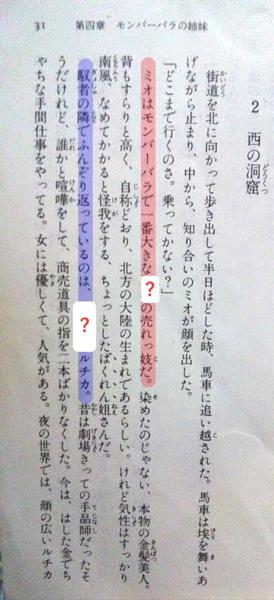 31 第四章 モンバーバラの姉妹
2 西の洞窟
街道を北に向かって歩き出して半日ほどした時、馬車に追い越された。馬車は埃を舞いあ
げながら止まり、中から、知り合いのミオが顔を出した。
「どこまで行くのさ。乗ってかない？」
ミオはモンバーバラで一番大きな?の売れっ妓だ。染めたのじゃない、本物の金髪美人。
背もすらりと高く、自称どおり、北方の大陸の生まれであるらしい。けれど気性はすっかり
南風、なめてかかると怪我をする、ちょっとしたばくれん姐さんだ。
馭者の隣でふんぞり返っているのは、?ルチカ。昔は劇場きっての手品師だったそ
うだけれど、誰かと喧嘩をして、商売道具の指を二本ばかりなくした。今は、はした金でち
ゃちな手間仕事をやってる。女には優しくて、人気がある。夜の世界では、顔の広いルチカ